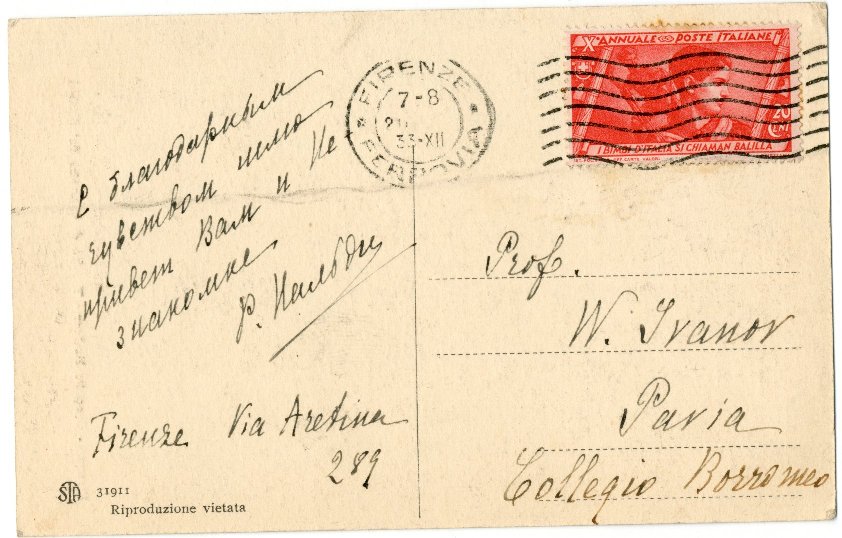 С благодарным
чувством шлю
привет Вам и Не
знакомке
Р. Нальди
Firenze Via Aretina
289
STA 31911
Riproduzione vietata
FIRENZE
7-8
33-XII
FERROVIA
X° ANNUALE POSTE ITALIANE
20
CENT
I BIMBI D'ITALIA SI CHIAMAN BALILLA
Prof.
W. Ivanov
Pavia
Collegio Borromeo